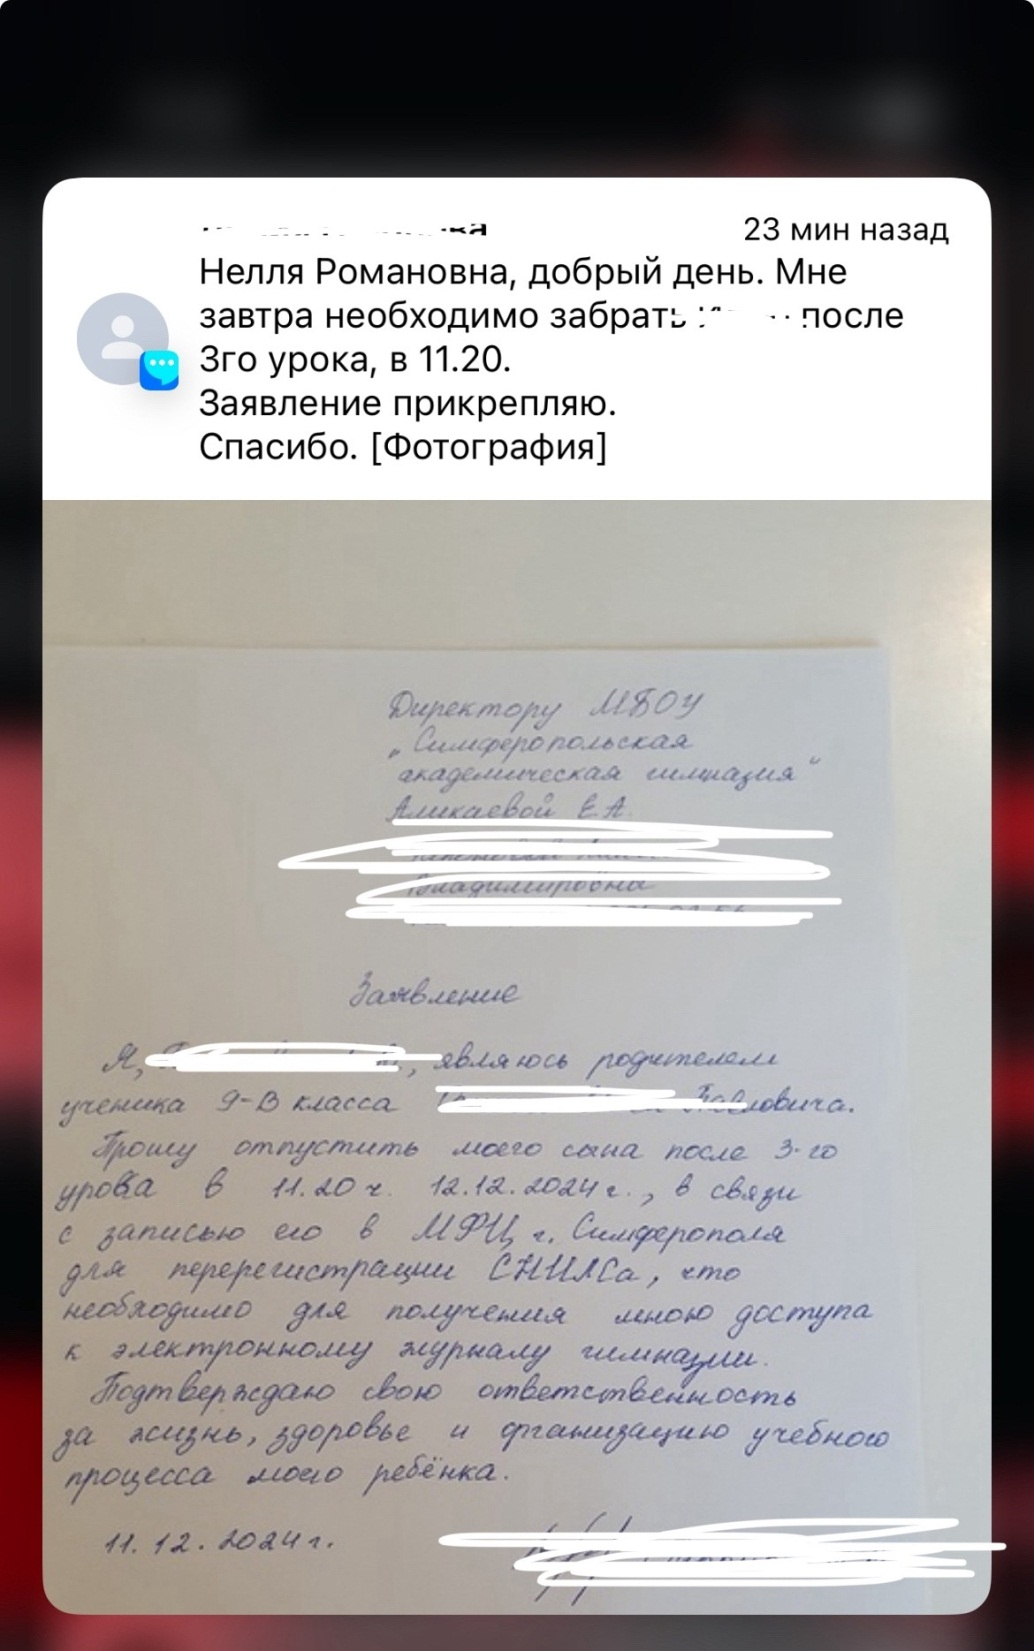 23 мин назад
Нелля Романовна, добрый день. Мне
завтра необходимо забрать после
3го урока, в 11.20.
Заявление прикрепляю.
Спасибо. [Фотография]
Директору МБОУ
„Симферопольская
академическая гимназия“
Аликаевой Е А
Владимировна
Заявление
Я, , являюсь родителем
ученика 9-В класса Павловича.
Прошу отпустить моего сына после 3-го
урока в 11.20 ч. 12.12.2024 г., в связи
с записью его в МФЦ г. Симферополя
для перерегистрации СНИЛСа, что
необходимо для получения мною доступа
к электронному журналу гимназии.
Подтверждаю свою ответственность
за жизнь, здоровье и организацию учебного
процесса моего ребёнка.
11.12.2024 г.